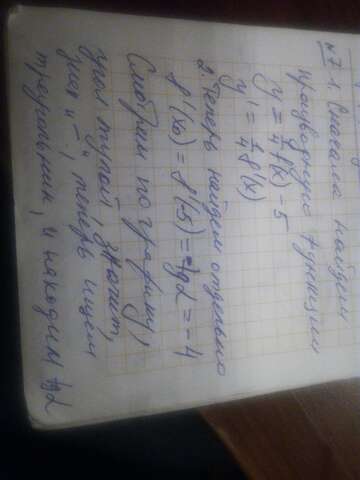 №7 1. Сначала найдем
производную функции
y = 1/4 f(x) - 5
y' = 1/4 f'(x)
2. Теперь найдем отдельно
f'(x₀) = f'(5) = tgα = -4
Смотрим по графику,
угол тупой, значит,
знак "-", теперь ищем
треугольник, и находим tgα